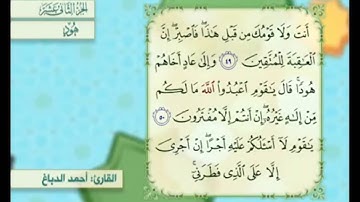 الجزء الثاني عشر
هُودٌ
أَنتَ وَلَا قَوْمُكَ مِن قَبْلِ هَٰذَا فَاصْبِرْ إِنَّ
الْعَاقِبَةَ لِلْمُتَّقِينَ ٤٩ وَإِلَىٰ عَادٍ أَخَاهُمْ
هُودًا قَالَ يَٰقَوْمِ اعْبُدُوا اللَّهَ مَا لَكُم
مِّنْ إِلَٰهٍ غَيْرُهُ إِنْ أَنتُمْ إِلَّا مُفْتَرُونَ ٥٠
يَٰقَوْمِ لَا أَسْـَٔلُكُمْ عَلَيْهِ أَجْرًا إِنْ أَجْرِيَ
إِلَّا عَلَى الَّذِي فَطَرَنِي
القارئ: أحمد الدباغ